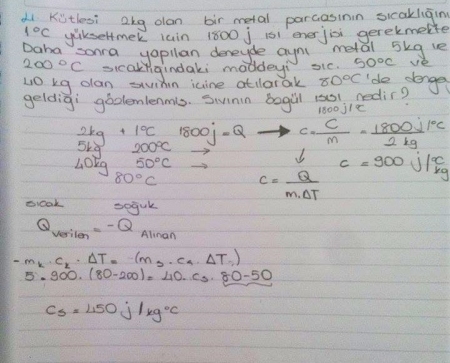 Kütlesi 2kg olan bir metal parçasının sıcaklığını
1°C yükseltmek için 1800 j ısı enerjisi gerekmekte
Daha sonra yapılan deneyde aynı metal 5kg ve
200°C sıcaklığındaki maddeyi sıc. 50°C ve
40 kg olan sıvının içine atılarak 80°C'de denge
geldiği gözlemlenmiş. Sıvının özgül ısısı nedir?
2kg + 1°C 1800j = Q → c = C/m = 1800j/°C / 2 kg
5kg 200°C →
40kg 50°C → c = 900 j/°C kg
80°C c = Q / m.ΔT
sıcak soğuk
Q verilen = -Q Alınan
- m₂ . c₂ . ΔT = (m₅ . c₅ . ΔT)
5.900.(80-200) = 40. c₅. 80-50
c₅ = 450 j / kg°C